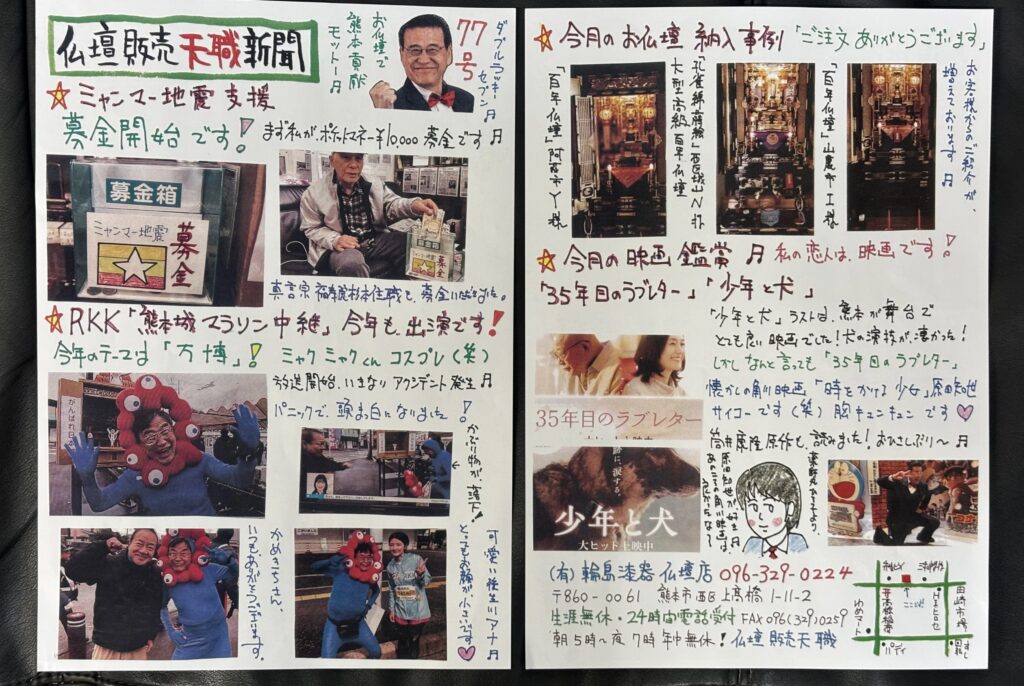 仏壇販売天職新聞
お仏壇で
熊本貢献
モットー♬
77号
ダブルラッキーセブン♬
☆ミャンマー地震支援
募金開始です!
まず私が、ポケットマネー¥10,000募金です♬
募金箱
ミャンマー地震
募金
募金箱
募金
☆RKK「熊本城マラソン中継」今年も出演です!
今年のテーマは「万博」!
ミャクミャクくんコスプレ(笑)
放送開始、いきなりアクシデント発生♬
パニックで、頭ま白になりました!
かぶり物が、落下!
がんばれ
かめきちさん、
いつもありがとうございます。
可愛い後生川アナ♬
とってもお顔が小さいです
☆今月のお仏壇納入事例「ご注文ありがとうございます」
「百年仏壇」阿蘇市Y様
大型高級百年仏壇
「百年仏壇」山鹿市I様
お客様からのご紹介が、
増えております♬
☆今月の映画鑑賞♬私の恋人は、映画です!
「35年目のラブレター」「少年と犬」
「少年と犬」ラストは、熊本が舞台で
とても良い映画でした!犬の演技が、凄かった!
しかしなんと言っても「35年目のラブレター」
懐かしの角川映画、「時をかける少女」原田知世
サイコーです(笑)胸キュンキュンです♡
筒井康隆原作も、読みました!おひさしぶり〜♬
35年目のラブレター
大ヒット上映中
涙する。
少年と犬
大ヒット上映中
原田知世が好き♬
あのころの角川映画は、
(有)輪島漆器仏壇店 096-329-0224
〒860-0061 熊本市西区上高橋1-11-2
生涯無休・24時間電話受付 FAX096(329)0259
朝5時〜夜7時年中無休!仏壇販売天職
ここだよ
田崎市場
ゆめマート